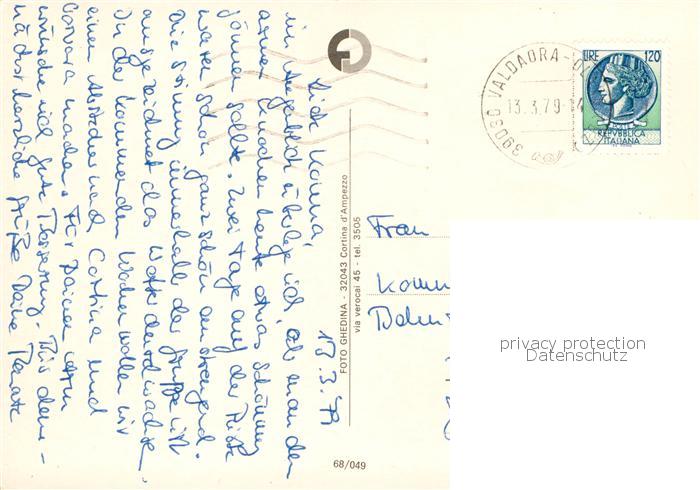 13.3.79
Liebe Hanna,
im Augenblick überlege ich, ob man den
armen Knochen heute etwas Schonung
gönnen sollte. Zwei Tage auf der Piste
waren schon ganz schön anstrengend.
Die Stimmung innerhalb der Gruppe ist
ausgezeichnet das Wetter
In der kommenden Woche wollen wir
einen Abstecher nach Cortina und
Corvara machen. Für Dainen
wünsche viel gute Besserung. Bis dem-
nächst herzliche Grüße Deine Renate
FOTO GHEDINA - 32043 Cortina d'Ampezzo
via verocai 45 - tel. 3505
68/049
39030 VALDAORA-OL
13.3.79
LIRE 120
POSTE
REPVBBLICA
ITALIANA
Frau
privacy protection
Datenschutz